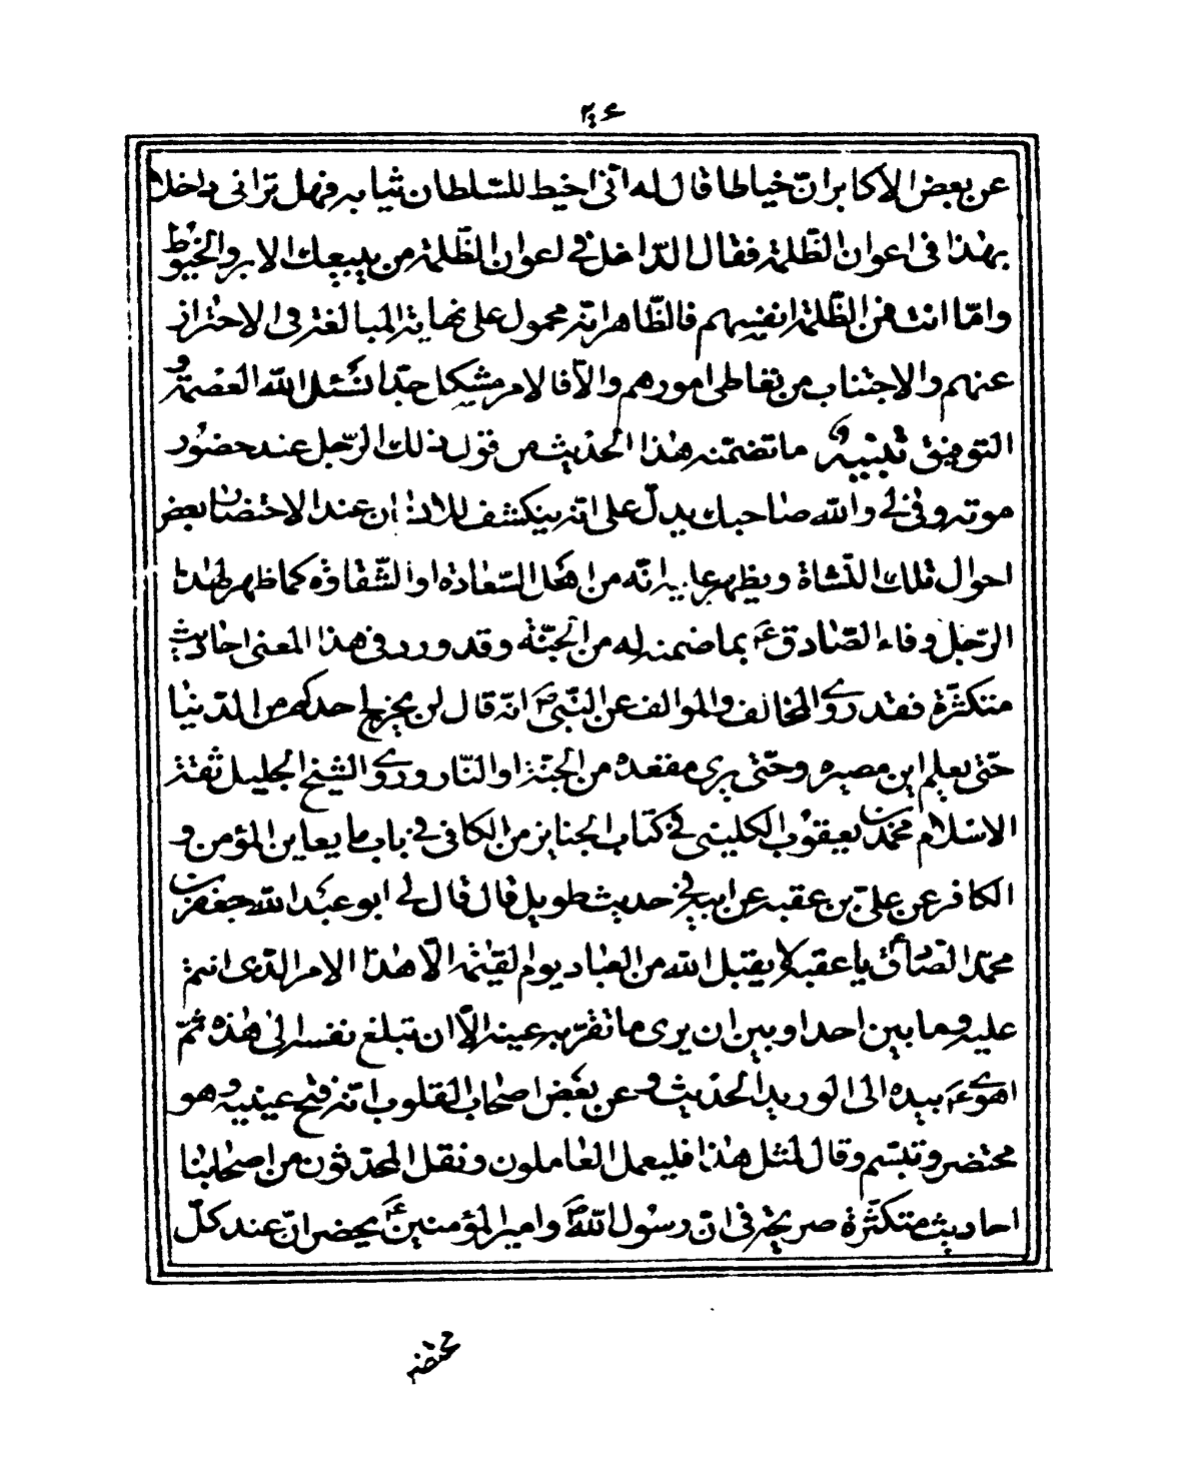 ۲۴۶
عن بعض الأكابر انّ خياطا قال له انّى اخيط للسّلطان ثيابه فهل ترانى داخلا
بهذا فى اعوان الظّلمة فقال الدّاخل فى اعوان الظّلمة من يبيعك الابر والخيوط
وامّا انت فمن الظّلمة انفسهم فالظّاهر انّه محمول على نهاية المبالغة فى الاحتراز
عنهم والاجتناب من تعاطى امورهم والّا فالامر مشكل جدّا نسئل اللّه العصمة و
التوفيق تنبيه و ما تضمّنه هذا الحديث من قول ذلك الرّجل عند حضور
موته وفى لى واللّه صاحبك يدلّ على انّه ينكشف للانسان عند الاحتضار بعض
احوال تلك النّشاة ويظهر عليه انّه من اهل السّعادة او الشّقاوة كما ظهر لهذا
الرّجل وفاء الصّادق ع بما ضمنه له من الجنّة وقد ورد فى هذا المعنى احاديث
متكثّرة فقد روى المخالف والموالف عن النّبىّ ص انّه قال لن يخرج احدكم من الدّنيا
حتّى يعلم اين مصيره وحتّى يرى مقعده من الجنّة او النّار وروى الشيخ الجليل ثقة
الاسلام محمّد بن يعقوب الكلينى فى كتاب الجنايز من الكافى فى باب ما يعاين المؤمن و
الكافر عن علىّ بن عقبه عن ابيه فى حديث طويل قال قال لى ابو عبد اللّه جعفر بن
محمّد الصّادق ع يا عقبه لا يقبل اللّه من العباد يوم القيٰمة الّا هذا الامر الّذى انتم
عليه وما بين احد او بين ان يرى ما تقرّ به عينه الّا ان تبلغ نفسه الى هذه ثمّ
اهوى ع بيده الى الوريد الحديث و عن بعض اصحاب القلوب انّه فتح عينيه و هو
محتضر وتبسّم وقال لمثل هذا فليعمل العاملون ونقل المحدّثون من اصحابنا
احاديث متكثّرة صريحة فى انّ رسول اللّه ص وامير المؤمنين ع يحضران عند كلّ
محتضر